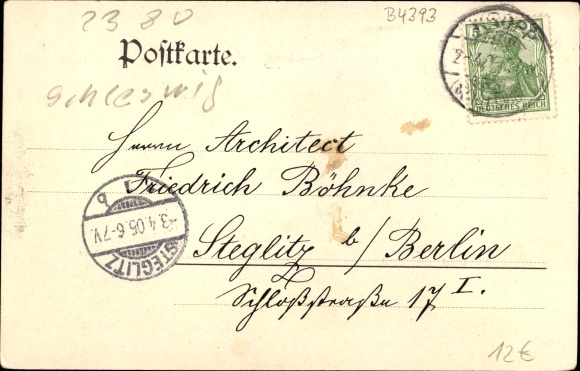 2380
B4393
Postkarte.
Schleswig
5
DEUTSCHES REICH
Herrn Architect
Friedrich Böhnke
-3.4.05.6-7V.
STEGLITZ
Steglitz b/Berlin
Schloßstraße 17 I.
12€